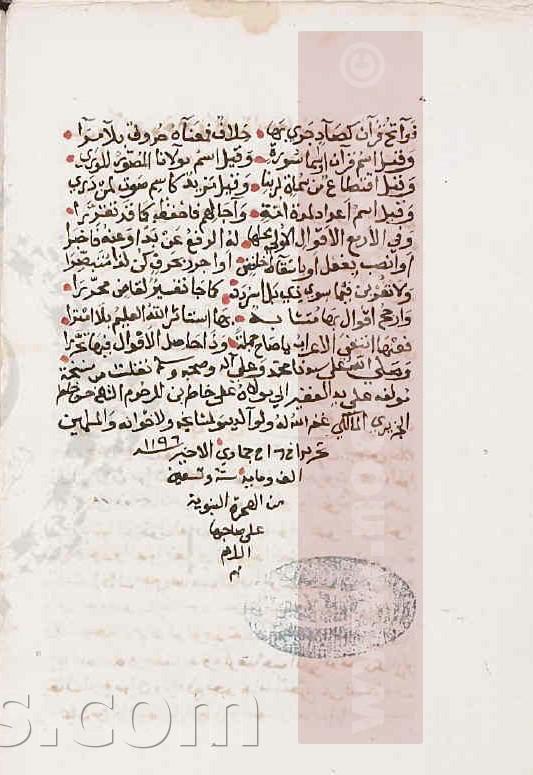 فواتح قرآن كصاد جرى بها خلاف فعناه حروف بلا مرا
وقيل اسم قرآن او اسما لسورة وقيل اسم مولانا المصور للورى
وقيل اقتطاع من سماة لربنا وقيل نريد كاسم صوت لمن درى
وقيل اسم اعداد لمدة امة وآجالهم فاحفظه كما قد تقررا
وفي الاربع الاقوال الاولى محلها له الرفع عن بدا وعنه فاخبرا
او انصب بفعل او باسقاط خافض او اجرر بحرف كن لذا متبصرا
ولا تقولن فيما سوى كما جا تفسير لقاض محررا
وارجح اقوال بها متشابه بها استاثر الله العليم بلا امترا
فعنها انتفى الاعراب يا صاح جملة وذا حاصل الاقوال فيها تحررا
وصلى الله على سيدنا محمد وعلى آله وصحبه وسلم نقلت من نسخة
مولفه على يد الفقير الى مولاه علي خاطر بن المرحوم
المالكي غفر الله له ولوالديه ولمشايخه ولاخوانه والمسلمين
تحريرا في جمادى الاخير سنة ١١٩٦
الف ومايه ستة وتسعين
من الهجرة النبوية
على صاحبها
السلام
م
©
www.mo
s.com